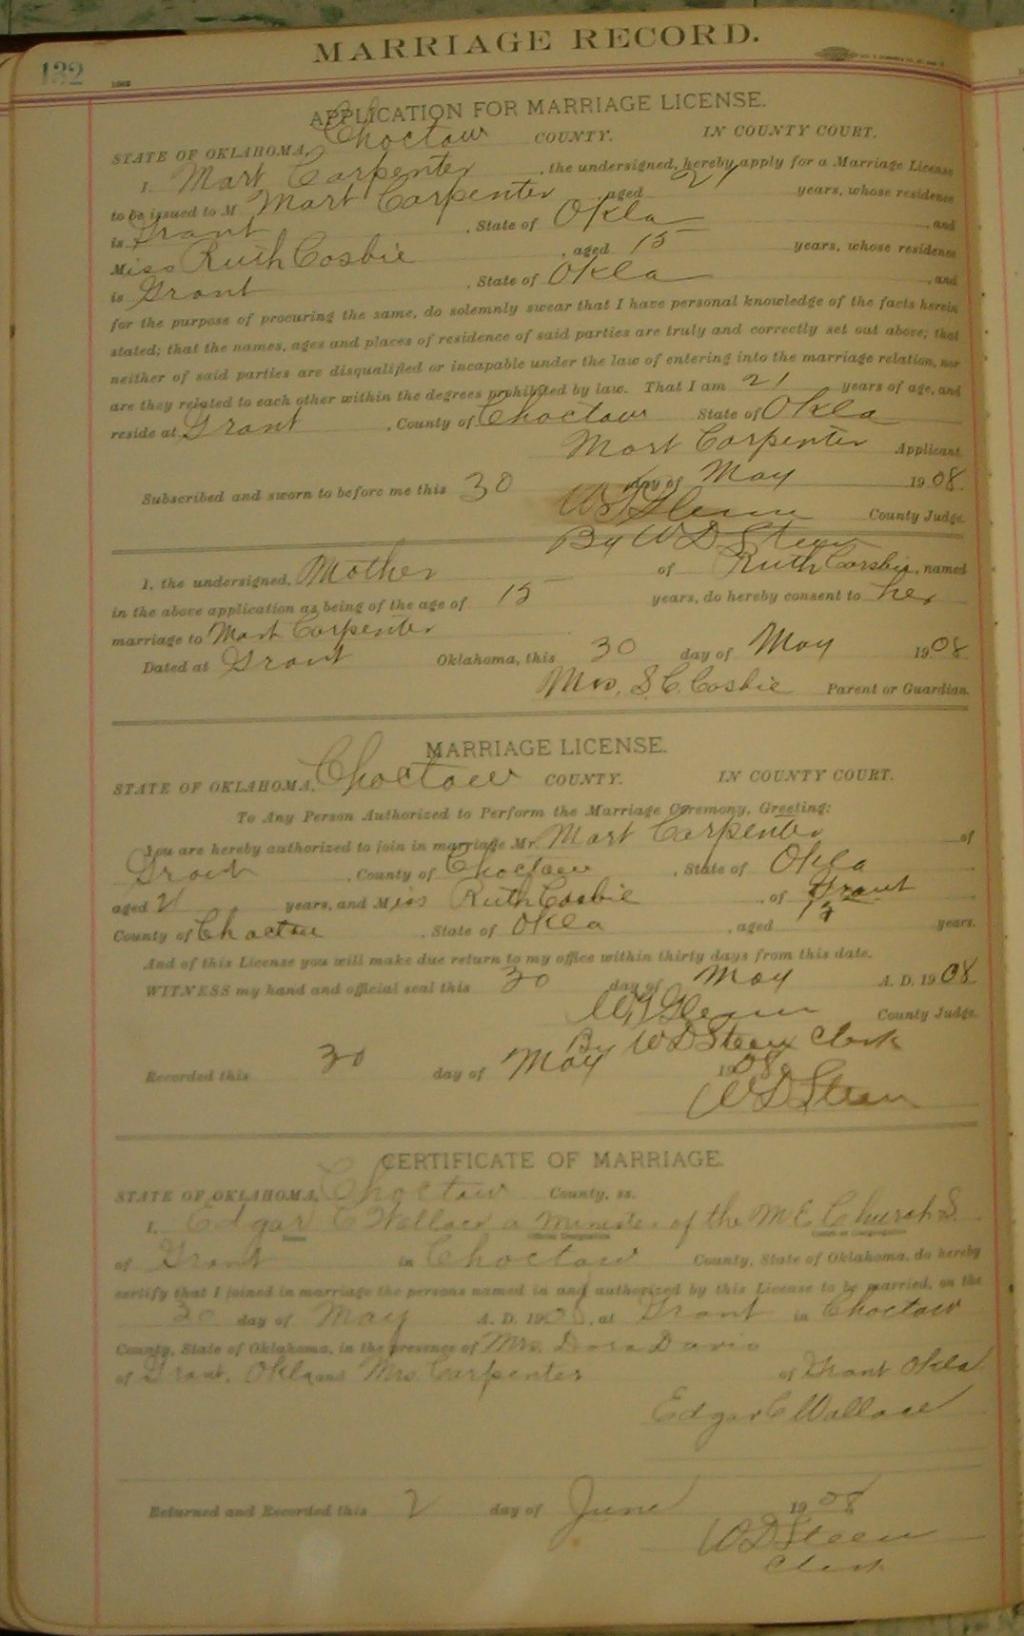 MARRIAGE RECORD.
132
APPLICATION FOR MARRIAGE LICENSE.
STATE OF OKLAHOMA, Choctaw COUNTY. IN COUNTY COURT.
I, Mart Carpenter, the undersigned, hereby apply for a Marriage License
to be issued to M Mart Carpenter aged 21 years, whose residence
is Grant, State of Okla, and
Miss Ruth Cosbie, aged 15 years, whose residence
is Grant, State of Okla, and
for the purpose of procuring the same, do solemnly swear that I have personal knowledge of the facts herein
stated; that the names, ages and places of residence of said parties are truly and correctly set out above; that
neither of said parties are disqualified or incapable under the law of entering into the marriage relation, nor
are they related to each other within the degrees prohibited by law. That I am 21 years of age, and
reside at Grant, County of Choctaw State of Okla
Mart Carpenter Applicant.
Subscribed and sworn to before me this 30 day of May 1908
W T Glenn County Judge.
By W D Steen
I, the undersigned, Mother of Ruth Corsbie, named
in the above application as being of the age of 15 years, do hereby consent to her
marriage to Mart Carpenter
Dated at Grant Oklahoma, this 30 day of May 1908
Mrs. S. C. Cosbie Parent or Guardian.
MARRIAGE LICENSE.
STATE OF OKLAHOMA, Choctaw COUNTY. IN COUNTY COURT.
To Any Person Authorized to Perform the Marriage Ceremony, Greeting:
You are hereby authorized to join in marriage Mr. Mart Carpenter of
Grant, County of Choctaw, State of Okla
aged 21 years, and Miss Ruth Cosbie, of Grant
County of Choctaw, State of Okla, aged years.
And of this License you will make due return to my office within thirty days from this date.
WITNESS my hand and official seal this 30 day of May A. D. 1908
W T Glenn County Judge.
By W D Steen Clerk
Recorded this 30 day of May 1908
W D Steen
CERTIFICATE OF MARRIAGE.
STATE OF OKLAHOMA, Choctaw County, ss.
I, Edgar C Wallace a Minister of the M E Church S.
of Grant in Choctaw County, State of Oklahoma, do hereby
certify that I joined in marriage the persons named in and authorized by this License to be married, on the
30 day of May A. D. 1908, at Grant in Choctaw
County, State of Oklahoma, in the presence of Mrs. Dora Davis
of Grant, Okla and Mrs. Carpenter of Grant Okla
Edgar C Wallace
Returned and Recorded this 2 day of June 1908
W D Steen
Clerk